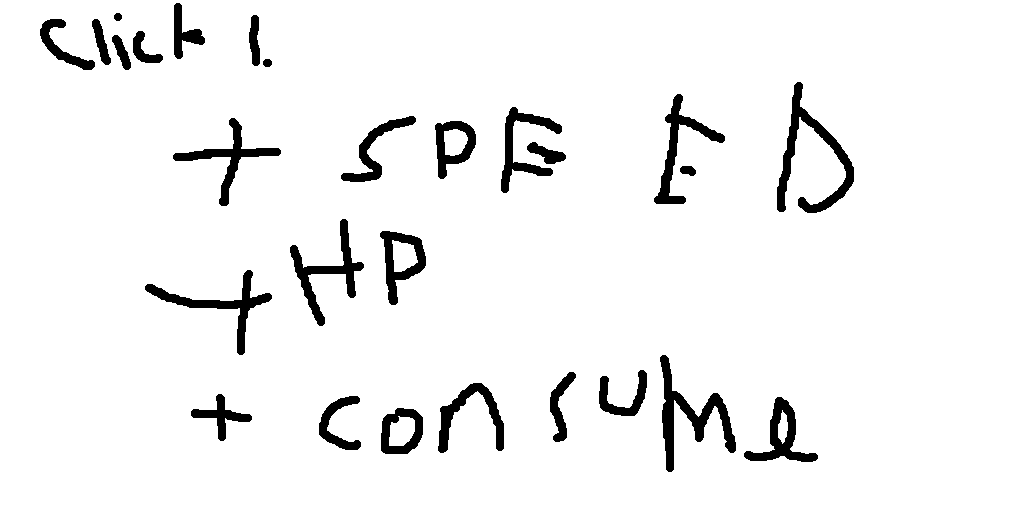 Click 1.
+ SPEED
+ HP
+ consume